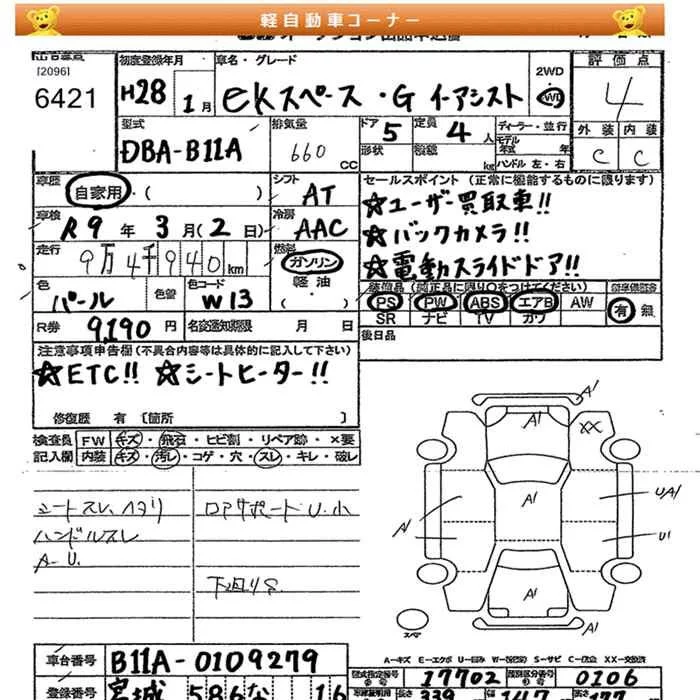 軽自動車コーナー
[2096]
6421
初度登録年月
H28 1月
車名・グレード
eKスペース・G e-アシスト
2WD
4WD
評価点
4
外装 内装
C C
型式
DBA-B11A
排気量
660 CC
ドア 5
形状
定員 4 人
積載 kg
ディーラー・並行
モデル年式 年
ハンドル 左・右
車歴
自家用・( )
シフト
AT
車検
R9年 3月(2日)
冷房
AAC
走行
9万4千940km
燃料
ガソリン
軽油
( )
色
パール
色替
色コード
W13
R券 9,190円
名変通知期限 月 日
セールスポイント(正常に機能するものに限ります)
☆ユーザー買取車!!
☆バックカメラ!!
☆電動スライドドア!!
装備品(純正品に限り○をつけてください)
PS PW ABS エアB AW
SR ナビ TV カワ
有 無
後日品
注意事項申告欄(不具合内容等は具体的に記入して下さい)
☆ETC!! ☆シートヒーター!!
修復歴 有 〔箇所 〕
検査員
記入欄
FW キズ・飛石・ヒビ割・リペア跡・×要
内装 キズ・汚レ・コゲ・穴・スレ・キレ・破レ
シートスレ、ヘタリ
ハンドルスレ
A-U.
ロアサポートU.小
下廻りS
A1
A1
XX
A1
A1
UA1
U1
A1
A1
スペア
A-キズ E-エクボ U-凹み W-(補修跡) S-サビ C-腐食 XX-交換済
車台番号
B11A-0109279
登録番号
宮城 586 な 16
型式指定番号
17702
類別区分番号
0106
長さ 339
147